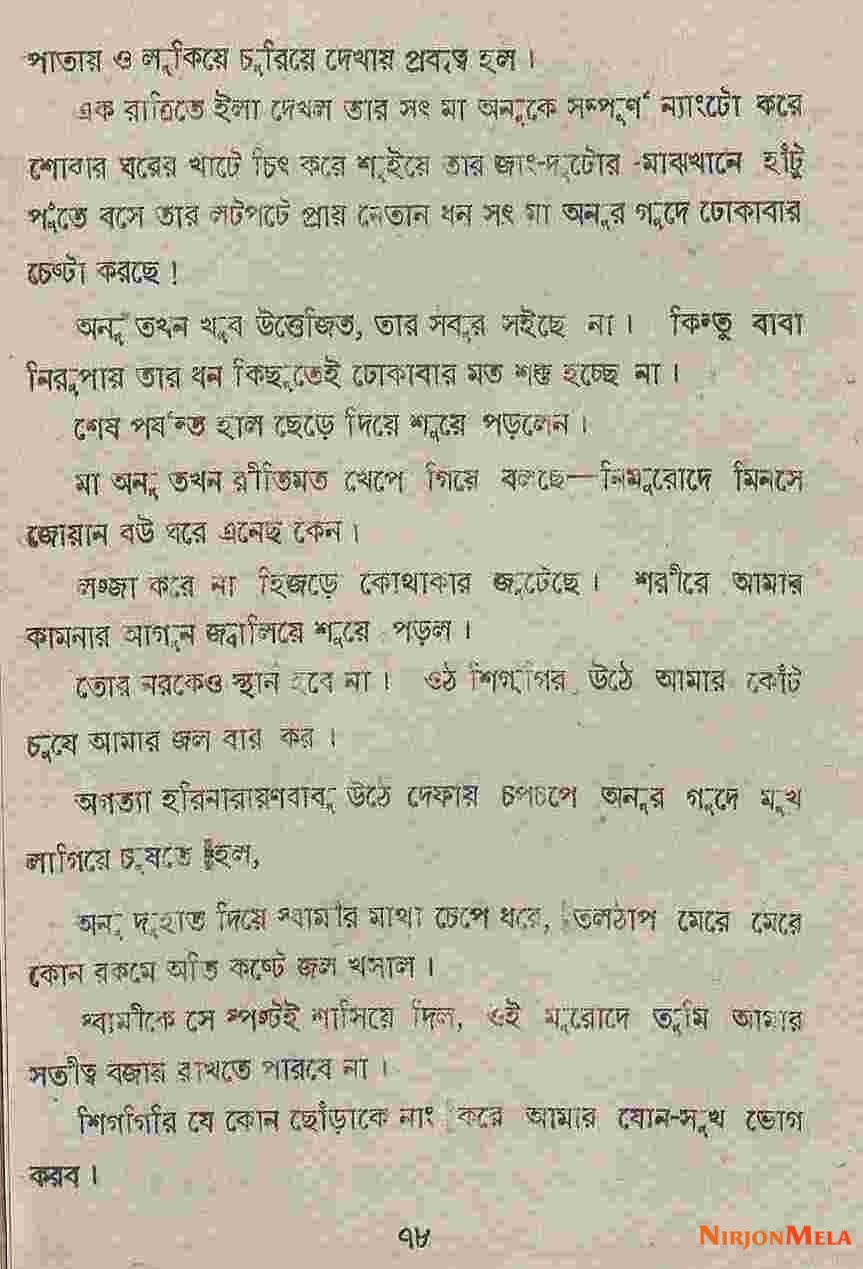 পাতায় ও লুকিয়ে চুরিয়ে দেখায় প্রবৃত্ব হল।
এক রাত্রিতে ইলা দেখল তার সৎ মা অনুকে সম্পূর্ণ ন্যাংটো করে
শোবার ঘরের খাটে চিৎ করে শুইয়ে তার জাং-দুটোর -মাঝখানে হাঁটু
পুঁতে বসে তার লটপটে প্রায় নেতান ধন সৎ মা অনুর গুদে ঢোকাবার
চেষ্টা করছে!
অনু তখন খুব উত্তেজিত, তার সবুর সইছে না। কিন্তু বাবা
নিরুপায় তার ধন কিছুতেই ঢোকাবার মত শক্ত হচ্ছে না।
শেষ পর্যন্ত হাল ছেড়ে দিয়ে শুয়ে পড়লেন।
মা অনু তখন রীতিমত খেপে গিয়ে বলছে—নিমুরোদে মিনসে
জোয়ান বউ ঘরে এনেছ কেন।
লজ্জা করে না হিজড়ে কোথাকার জুটেছে। শরীরে আমার
কামনার আগুন জ্বালিয়ে শুয়ে পড়ল।
তোর নরকেও স্থান হবে না। ওঠ শিগ্গির উঠে আমার কোঁট
চুষে আমার জল বার কর।
অগত্যা হরিনারায়ণবাবু উঠে দেফায় চপচপে অনুর গুদে মুখ
লাগিয়ে চুষতে হল,
অনু দুহাত দিয়ে স্বামীর মাথা চেপে ধরে, তলঠাপ মেরে মেরে
কোন রকমে অতি কষ্টে জল খসাল।
স্বামীকে সে স্পষ্টই শাসিয়ে দিল, ওই মুরোদে তুমি আমার
সতীত্ব বজায় রাখতে পারবে না।
শিগগিরি যে কোন ছোঁড়াকে নাং করে আমার যোন-সুখ ভোগ
করব।
৭৮
NIRJONMELA